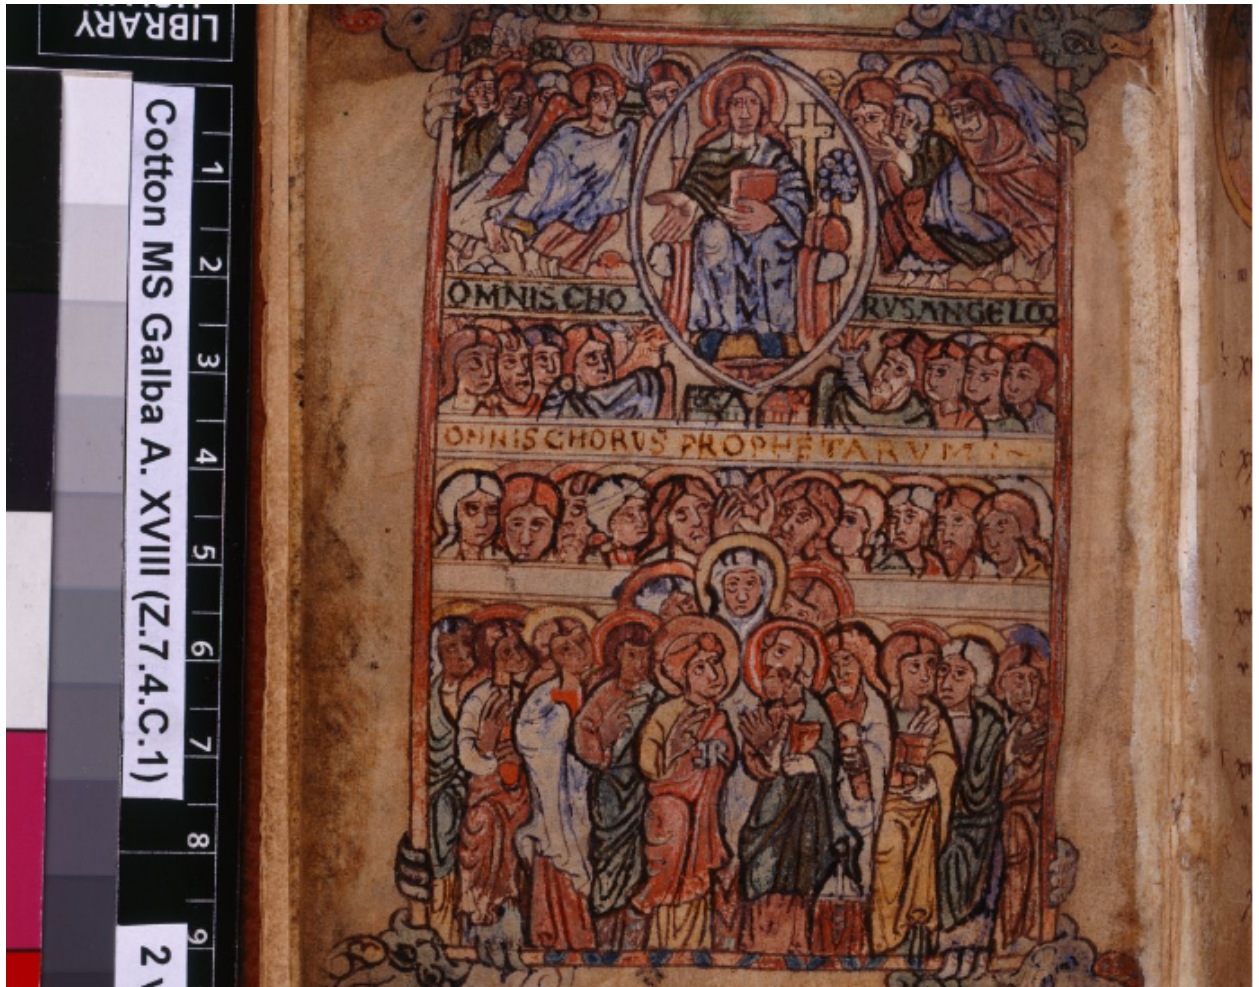 LIBRARY
Cotton MS Galba A. XVIII (Z.7.4.C.1)
1
2
3
4
5
6
7
8
9
2
OMNIS CHO RVS ANGELOR
OMNIS CHORVS PROPHETARVM